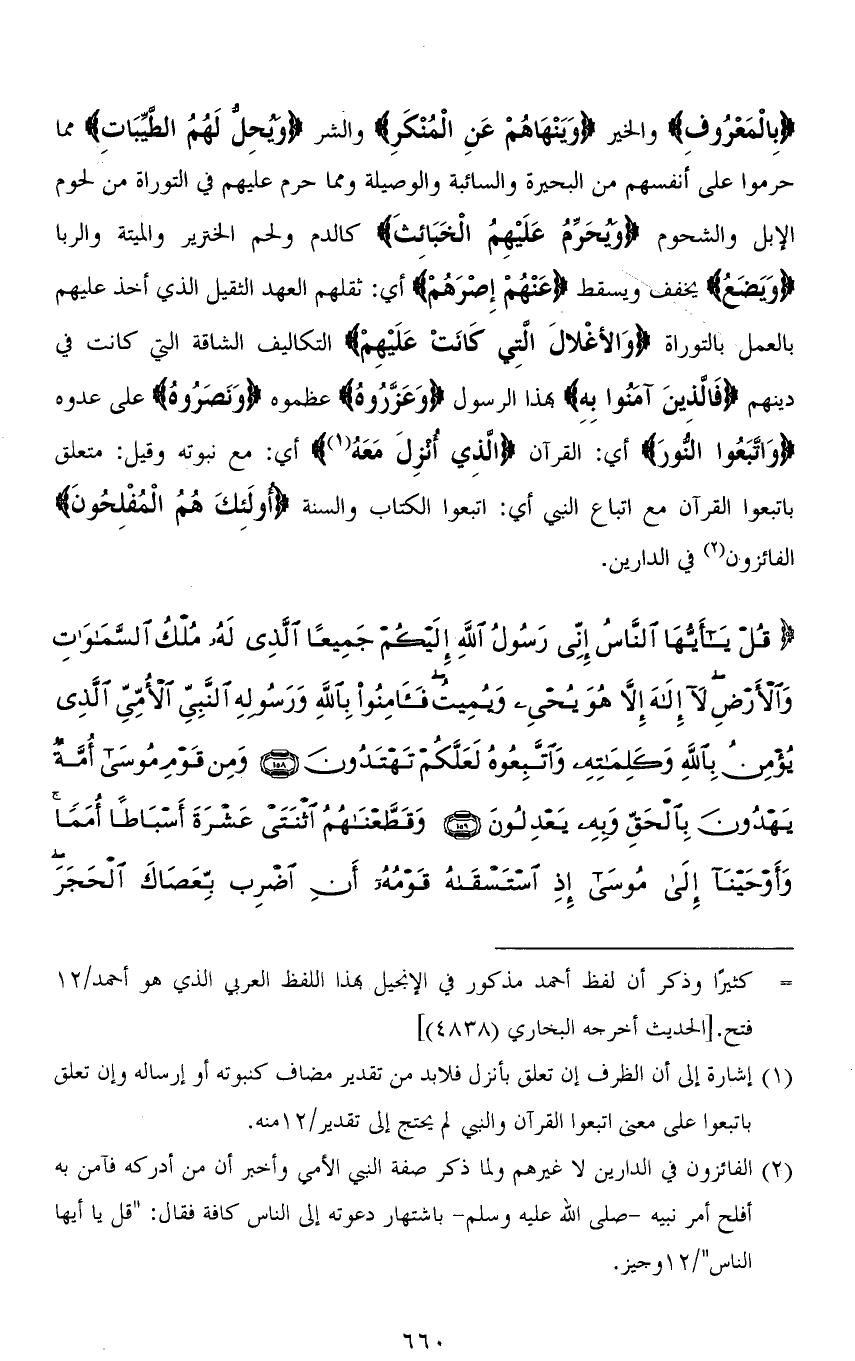 ﴿بِالْمَعْرُوفِ﴾ والخير ﴿وَيَنْهَاهُمْ عَنِ الْمُنْكَرِ﴾ والشر ﴿وَيُحِلُّ لَهُمُ الطَّيِّبَات﴾ مما
حرموا على أنفسهم من البحيرة والسائبة والوصيلة ومما حرم عليهم في التوراة من لحوم
الإبل والشحوم ﴿وَيُحَرِّمُ عَلَيْهِمُ الْخَبَائِثَ﴾ كالدم ولحم الخنزير والميتة والربا
﴿وَيَضَعُ﴾ يخفف ويسقط ﴿عَنْهُمْ إِصْرَهُمْ﴾ أي: ثقلهم العهد الثقيل الذي أخذ عليهم
بالعمل بالتوراة ﴿وَالأغْلالَ الَّتِي كَانَتْ عَلَيْهِمْ﴾ التكاليف الشاقة التي كانت في
دينهم ﴿فَالَّذِينَ آمَنُوا بِهِ﴾ بهذا الرسول ﴿وَعَزَّرُوهُ﴾ عظموه ﴿وَنَصَرُوهُ﴾ على عدوه
﴿وَاتَّبَعُوا النُّورَ﴾ أي: القرآن ﴿الَّذِي أُنْزِلَ مَعَهُ(١)﴾ أي: مع نبوته وقيل: متعلق
باتبعوا القرآن مع اتباع النبي أي: اتبعوا الكتاب والسنة ﴿أُولَئِكَ هُمُ الْمُفْلِحُونَ﴾
الفائزون(٢) في الدارين.
﴿ قُلْ يَـٰٓأَيُّهَا ٱلنَّاسُ إِنِّى رَسُولُ ٱللَّهِ إِلَيْكُمْ جَمِيعًا ٱلَّذِى لَهُۥ مُلْكُ ٱلسَّمَـٰوَٰتِ
وَٱلْأَرْضِ ۖ لَآ إِلَـٰهَ إِلَّا هُوَ يُحْىِۦ وَيُمِيتُ ۖ فَـَٔامِنُوا۟ بِٱللَّهِ وَرَسُولِهِ ٱلنَّبِىِّ ٱلْأُمِّىِّ ٱلَّذِى
يُؤْمِنُ بِٱللَّهِ وَكَلِمَـٰتِهِۦ وَٱتَّبِعُوهُ لَعَلَّكُمْ تَهْتَدُونَ ﴿١٥٨﴾ وَمِن قَوْمِ مُوسَىٰٓ أُمَّةٌ
يَهْدُونَ بِٱلْحَقِّ وَبِهِۦ يَعْدِلُونَ ﴿١٥٩﴾ وَقَطَّعْنَـٰهُمُ ٱثْنَتَىْ عَشْرَةَ أَسْبَاطًا أُمَمًا ۚ
وَأَوْحَيْنَآ إِلَىٰ مُوسَىٰٓ إِذِ ٱسْتَسْقَىٰهُ قَوْمُهُۥٓ أَنِ ٱضْرِب بِّعَصَاكَ ٱلْحَجَرَ ۖ
= كثيرًا وذكر أن لفظ أحمد مذكور في الإنجيل بهذا اللفظ العربي الذي هو أحمد/١٢
فتح.[الحديث أخرجه البخاري (٤٨٣٨)]
(١) إشارة إلى أن الظرف إن تعلق بأنزل فلابد من تقدير مضاف كنبوته أو إرساله وإن تعلق
باتبعوا على معنى اتبعوا القرآن والنبي لم يحتج إلى تقدير/١٢منه.
(٢) الفائزون في الدارين لا غيرهم ولما ذكر صفة النبي الأمي وأخبر أن من أدركه فآمن به
أفلح أمر نبيه –صلى الله عليه وسلم– باشتهار دعوته إلى الناس كافة فقال: "قل يا أيها
الناس"/١٢وجيز.
٦٦٠